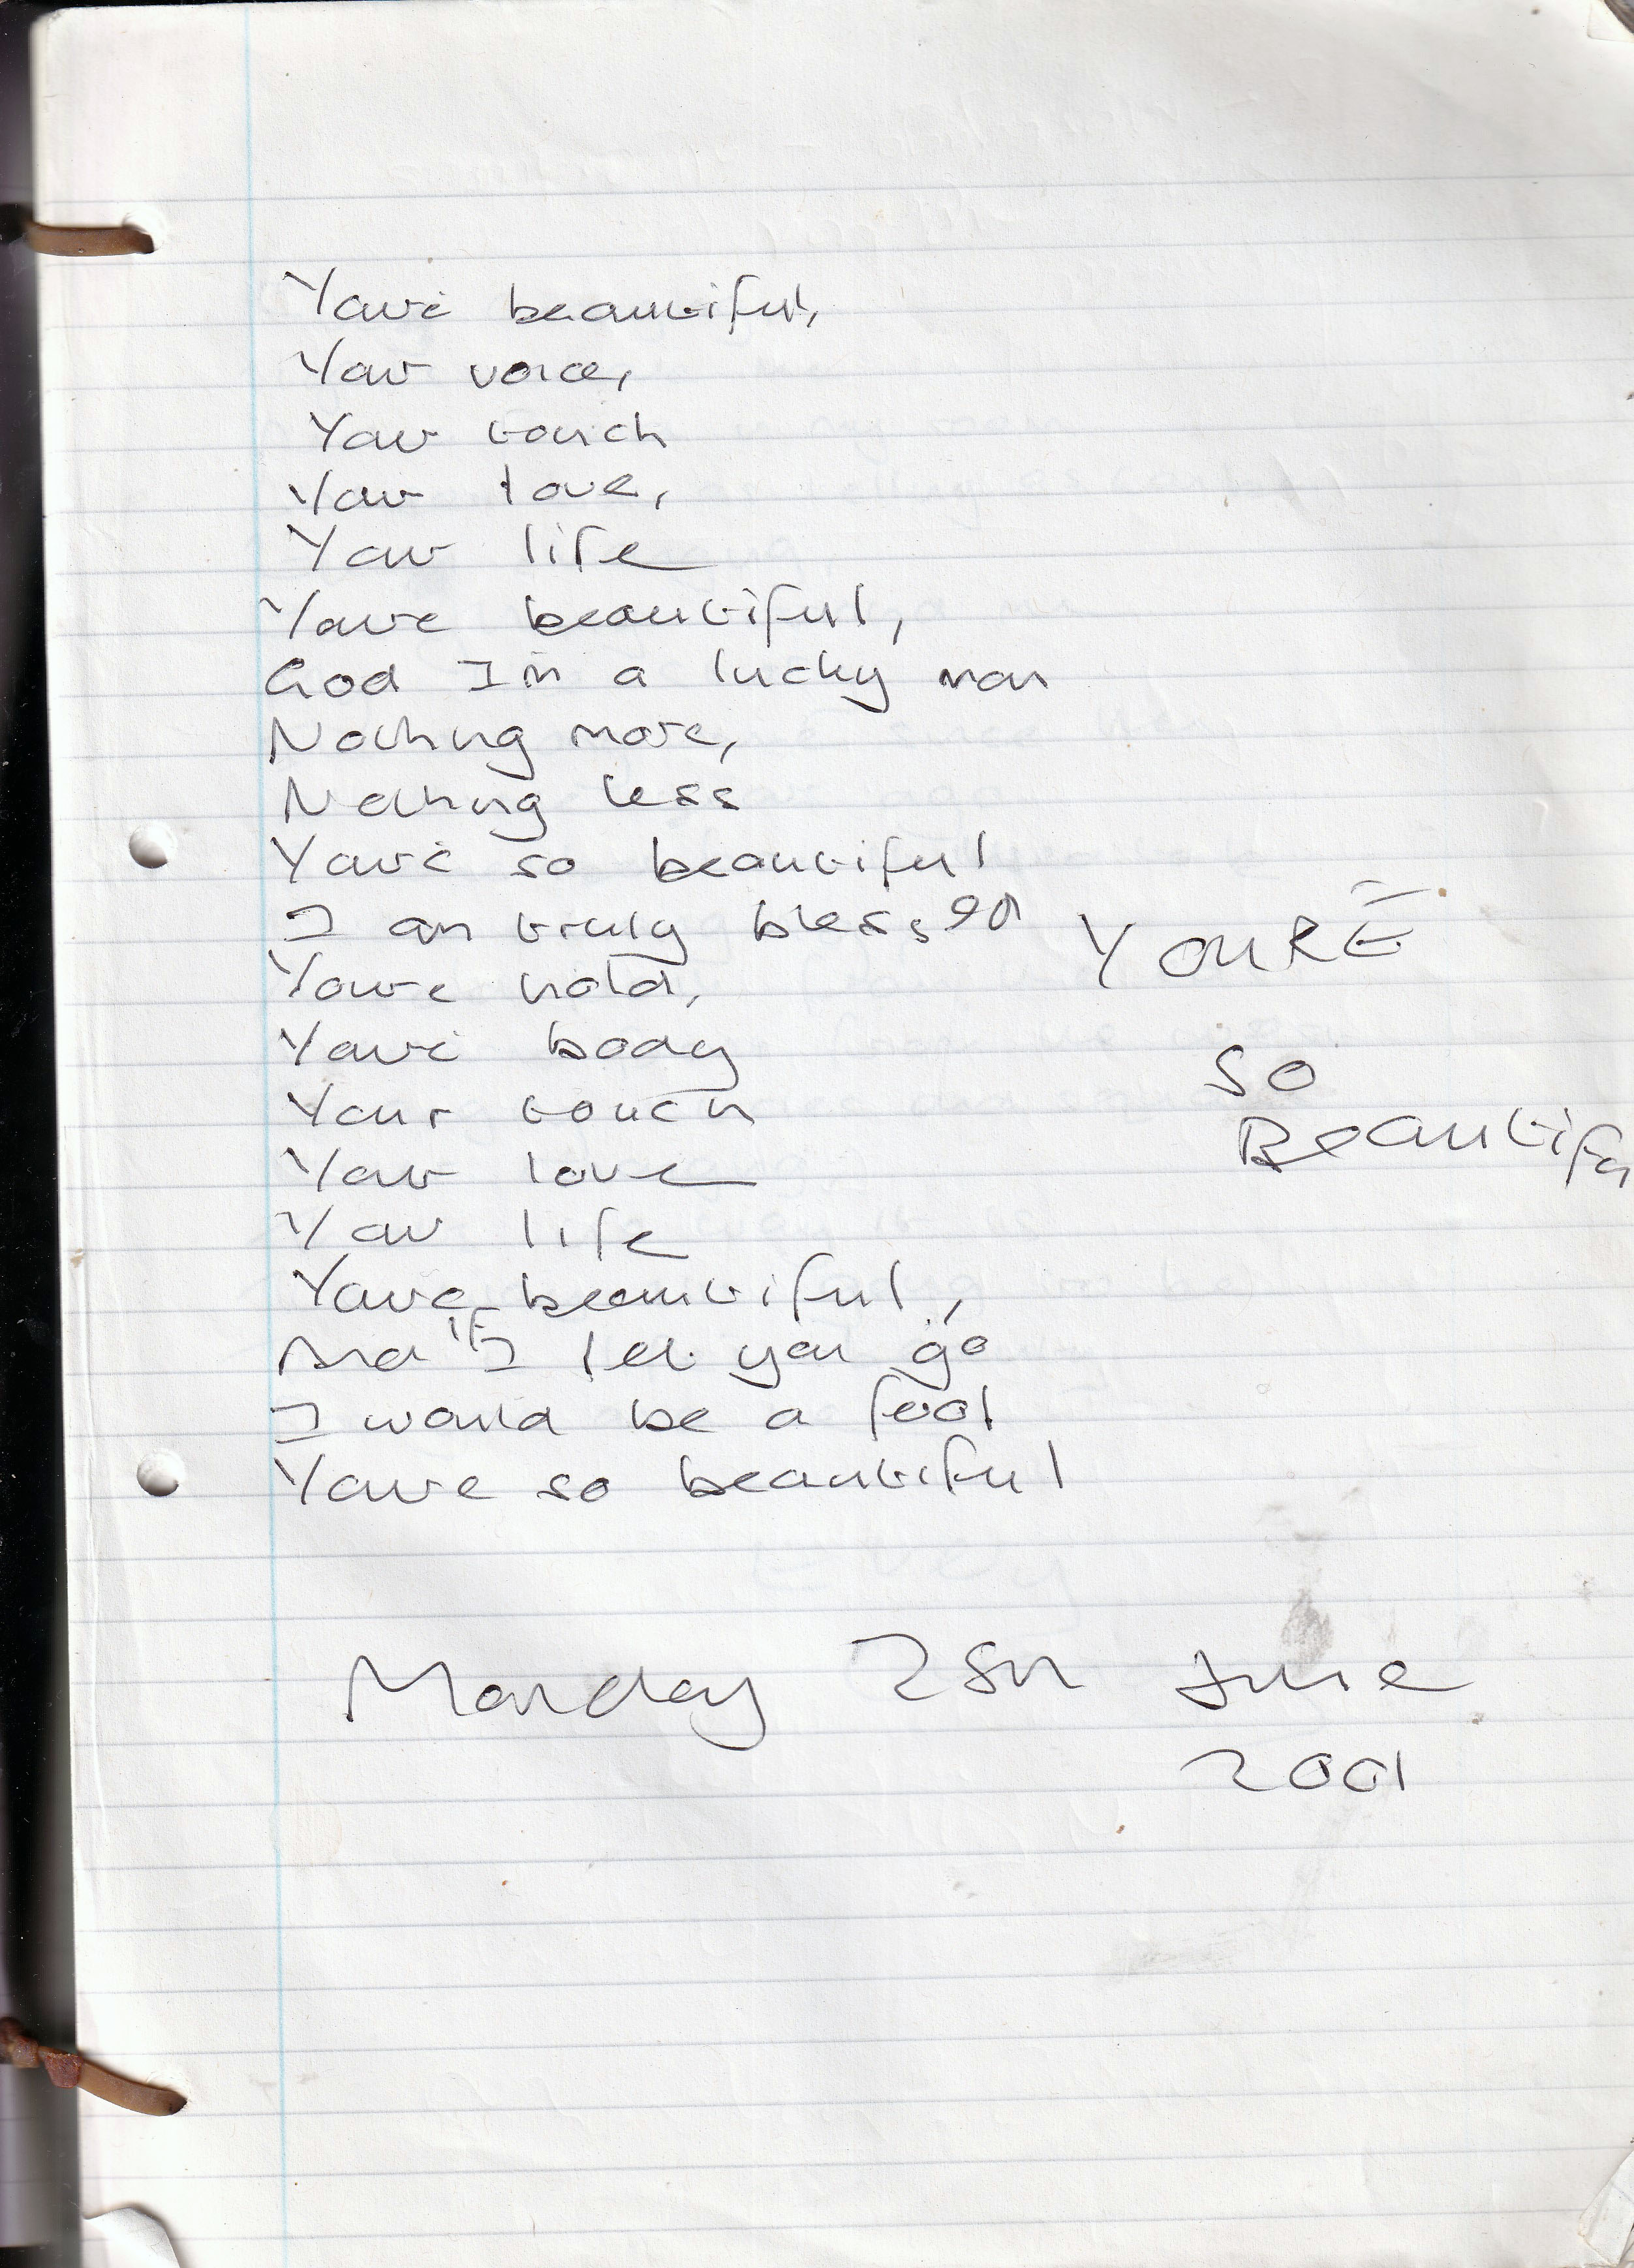 Youre beautiful,
Your voice,
Your touch
Your love,
Your life
Youre beautiful,
God I'm a lucky man
Nothing more,
Nothing less
Youre so beautiful
I am truly blessed
Youre hold,
Youre body
Your touch
Your love
Your life
Youre beautiful,
And if I let you go
I would be a fool
Youre so beautiful
YOURE
SO
Beautifu
Monday 25th June
2001